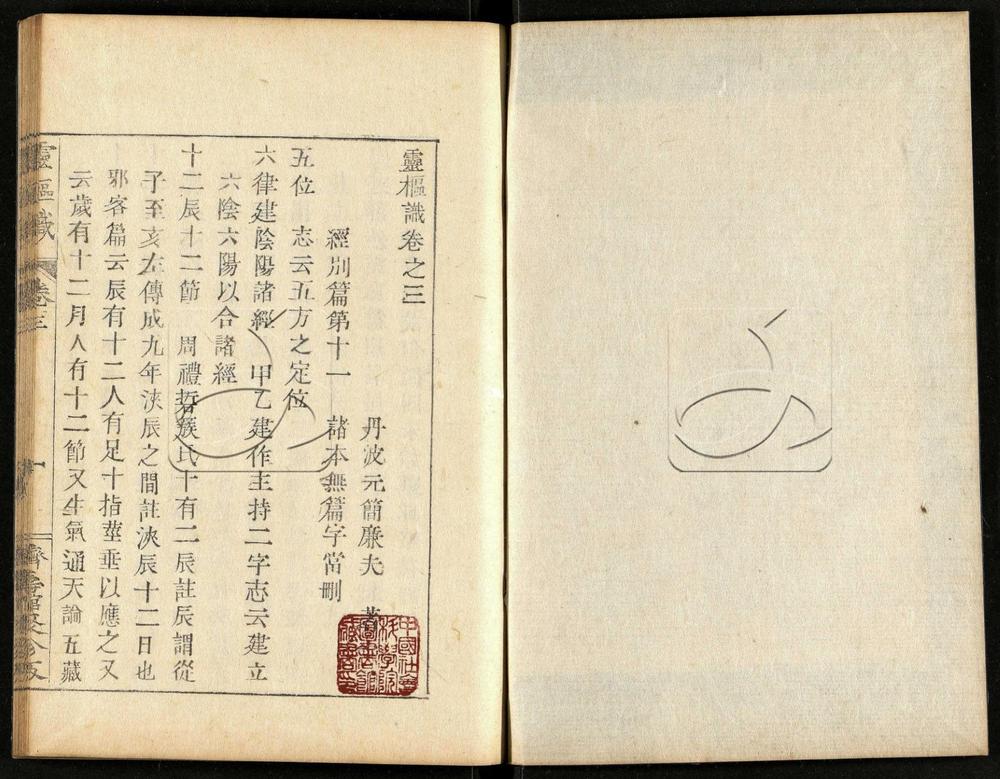 靈樞識卷之三
丹波元簡廉夫 著
經別篇第十一 諸本無篇字當刪
五位 志云五方之定位
六律建陰陽諸經 甲乙建作主持二字志云建立
六陰六陽以合諸經
十二辰十二節 周禮硩蔟氏十有二辰註辰謂從
子至亥左傳成九年浹辰之間註浹辰十二日也
邪客篇云辰有十二人有足十指莖垂以應之又
云歲有十二月人有十二節又生氣通天論五藏
靈樞識 卷三 一
中國社會科學院圖書館藏書